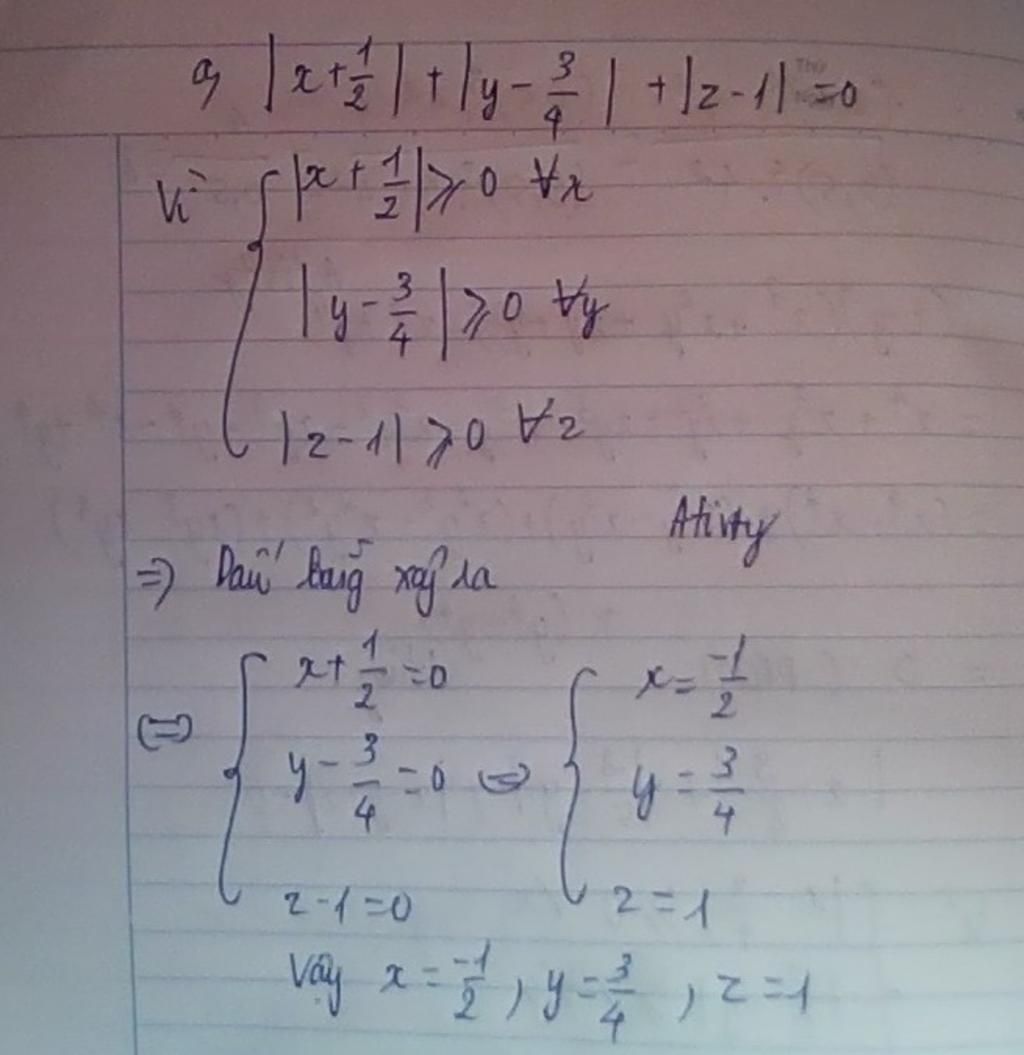 a, |x + 1/2| + |y - 3/4| + |z - 1| = 0
Vì { |x + 1/2| ⩾ 0 ∀x
|y - 3/4| ⩾ 0 ∀y
|z - 1| ⩾ 0 ∀z
Ativty
=> Dấu bằng xảy ra
(=) { x + 1/2 = 0 (=) { x = -1/2
y - 3/4 = 0 y = 3/4
z - 1 = 0 z = 1
Vậy x = -1/2, y = 3/4, z = 1